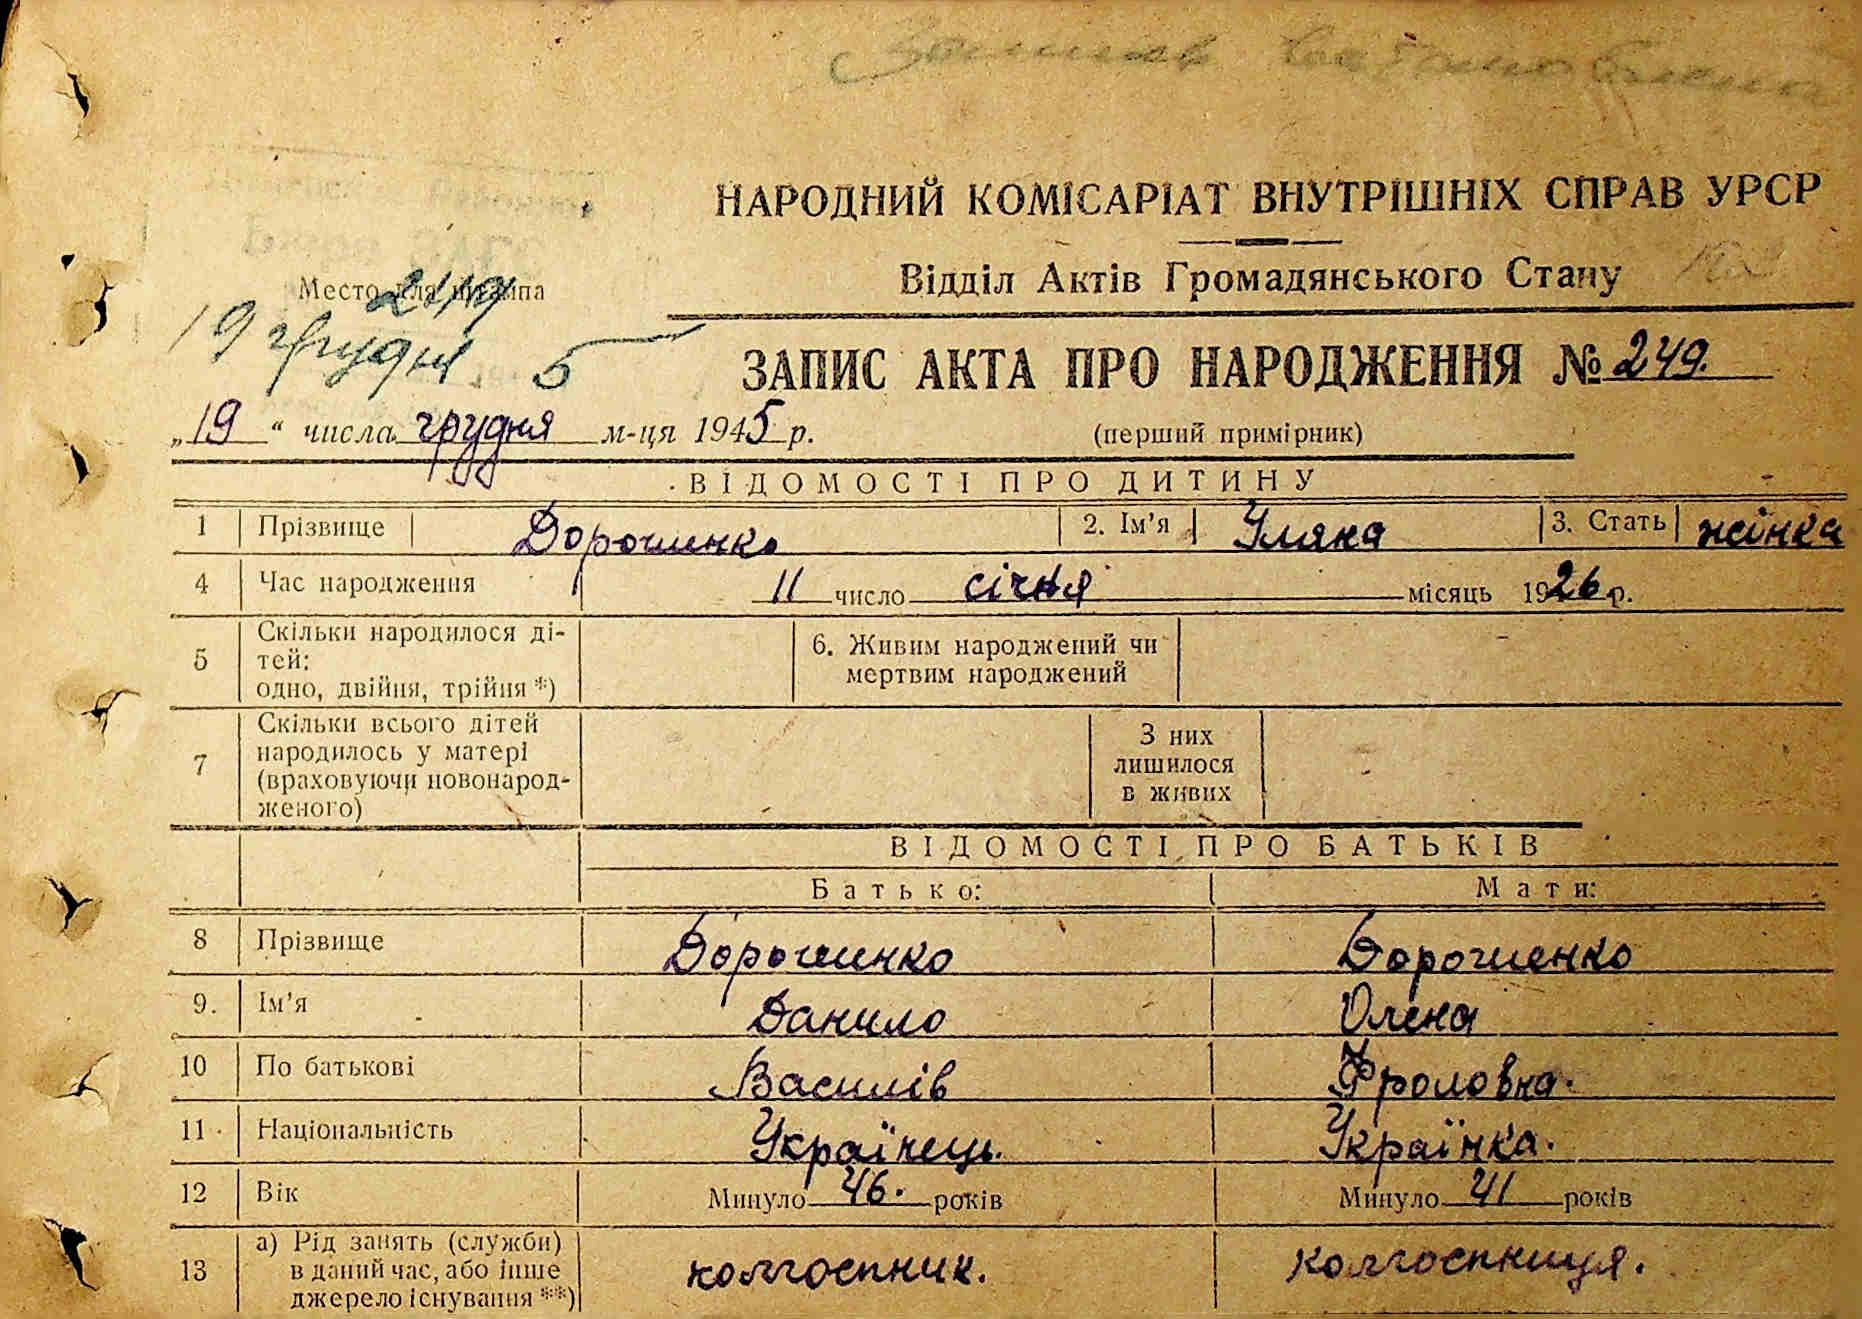 НАРОДНИЙ КОМІСАРІАТ ВНУТРІШНІХ СПРАВ УРСР
Відділ Актів Громадянського Стану
Место для штампа
249
19 грудня 5
ЗАПИС АКТА ПРО НАРОДЖЕННЯ № 249.
„19“ числа грудня м-ця 1945 р. (перший примірник)
ВІДОМОСТІ ПРО ДИТИНУ
1 Прізвище Дорошинко 2. Ім’я Уляна 3. Стать жінка
4 Час народження 11 число січня місяць 1926 р.
5 Скільки народилося ді-
тей:
одно, двійня, трійня *)
6. Живим народжений чи
мертвим народжений
7 Скільки всього дітей
народилось у матері
(враховуючи новонарод-
женого)
З них
лишилося
в живих
ВІДОМОСТІ ПРО БАТЬКІВ
Батько: Мати:
8 Прізвище Дорошинко Дорошенко
9. Ім’я Данило Олена
10 По батькові Василів Фроловна.
11 Національність Українець. Українка.
12 Вік Минуло 46. років Минуло 41 років
13 а) Рід занять (служби)
в даний час, або інше
джерело існування **)
колгоспник. колгоспниця.